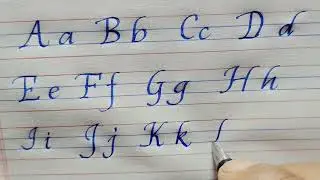 A a B b C c D d
E e F f G g H h
I i J j K k